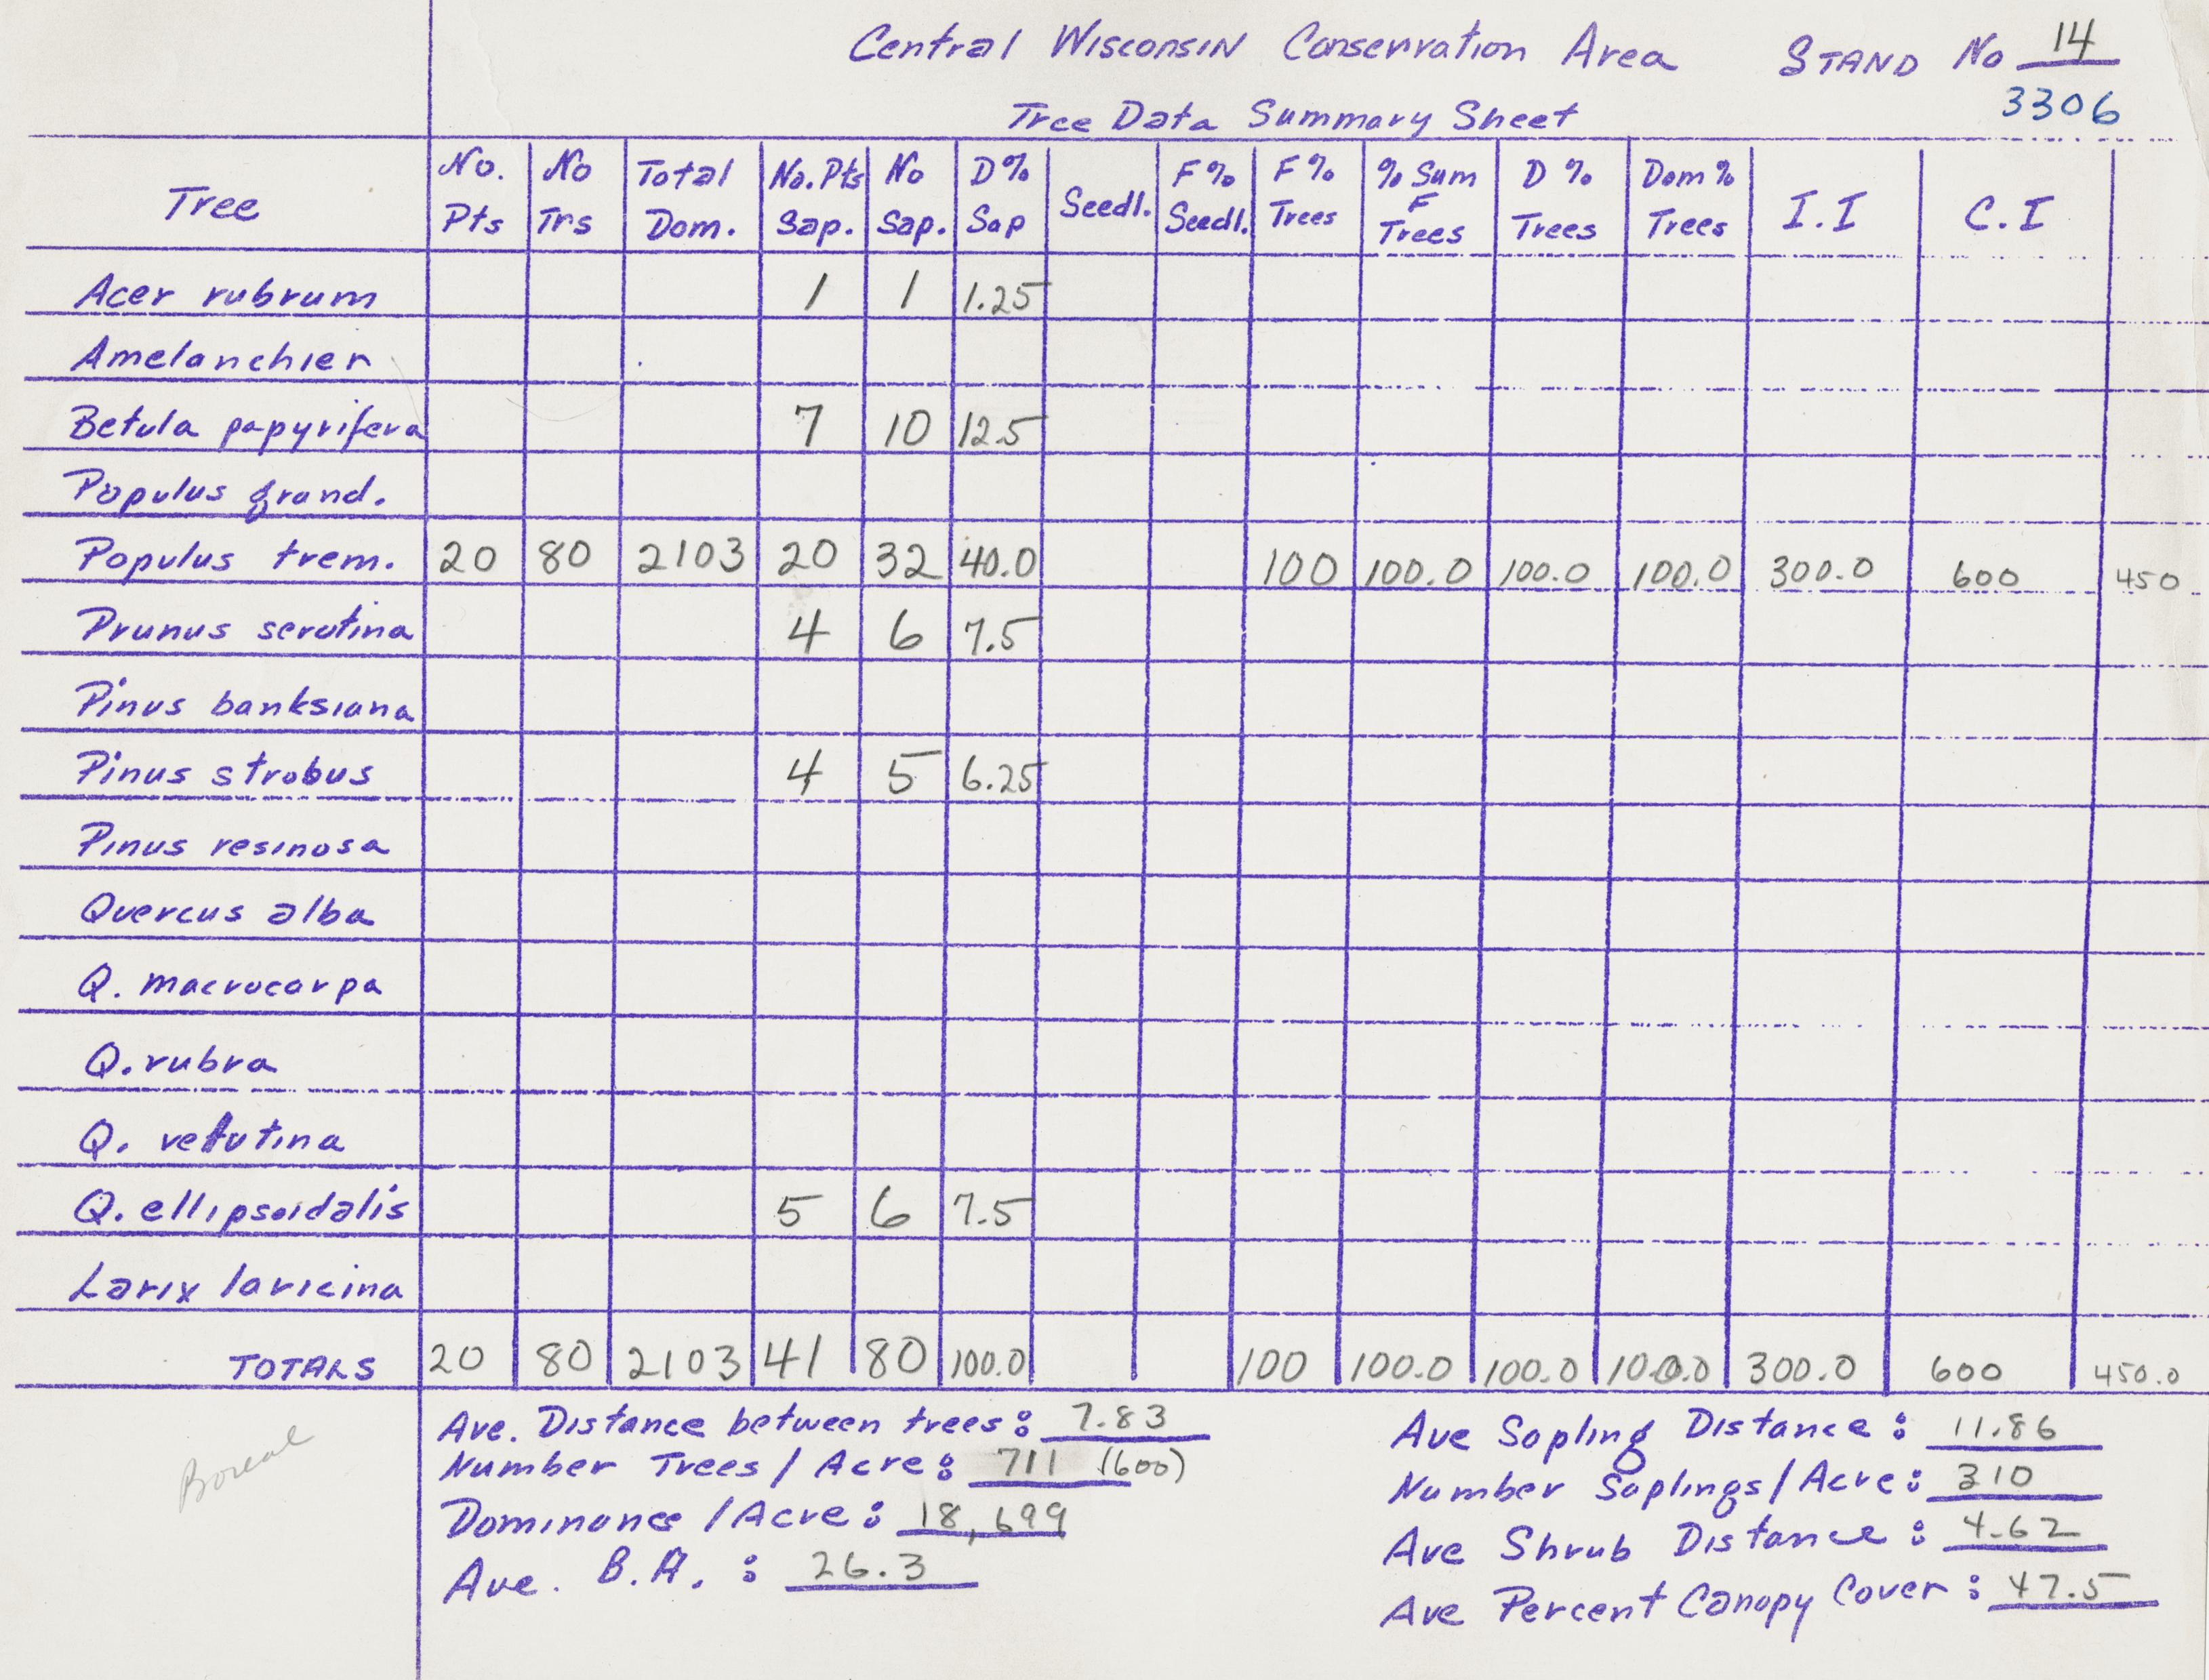 Central Wisconsin Conservation Area STAND No 14
3306
Tree Data Summary Sheet
Tree No. Pts No Trs Total Dom. No. Pts Sap. No Sap. D% Sap Seedl. F% Seedl. F% Trees % Sum F Trees D % Trees Dom % Trees I.I C.I
Acer rubrum 1 1 1.25
Amelanchier
Betula papyrifera 7 10 12.5
Populus grand.
Populus trem. 20 80 2103 20 32 40.0 100 100.0 100.0 100.0 300.0 600 450
Prunus serotina 4 6 7.5
Pinus banksiana
Pinus strobus 4 5 6.25
Pinus resinosa
Quercus alba
Q. macrocarpa
Q. rubra
Q. velutina
Q. ellipsoidalis 5 6 7.5
Larix laricina
TOTALS 20 80 2103 41 80 100.0 100 100.0 100.0 100.0 300.0 600 450.0
Ave. Distance between trees: 7.83
Number Trees / Acre: 711 (600)
Dominance / Acre: 18,699
Ave. B.A. : 26.3
Ave Sapling Distance: 11.86
Number Saplings / Acre: 310
Ave Shrub Distance: 4.62
Ave Percent Canopy Cover: 47.5
Boreal